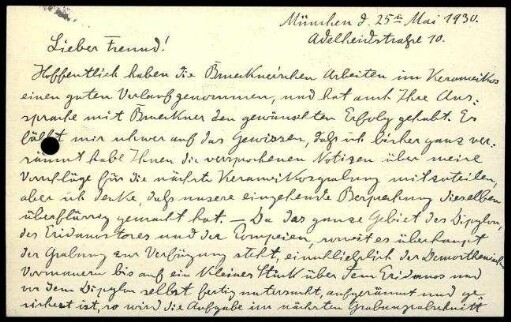 München d. 25ten Mai 1930.
Adelheidstraße 10.
Lieber Freund!
Hoffentlich haben die Brueckner'schen Arbeiten im Kerameikos
einen guten Verlauf genommen, und hat auch Ihre Aus-
sprache mit Brueckner den gewünschten Erfolg gehabt. Es
fällt mir schwer auf das Gewissen, daß ich bisher ganz ver-
säumt habe Ihnen die versprochenen Notizen über meine
Vorschläge für die nächste Keramikosgrabung mitzuteilen,
aber ich denke, daß unsere eingehende Besprechung dieselben
überflüssig gemacht hat. — Da das ganze Gebiet des Dipylon,
des Eridanostores und des Pompeion, soweit es überhaupt
der Grabung zur Verfügung steht, einschließlich der Demosthenischen
Vormauern bis auf ein kleines Stück über dem Eridanos und
vor dem Dipylon selbst fertig untersucht, aufgeräumt und ge-
sichert ist, so wird die Aufgabe im nächsten Grabungsabschnitt